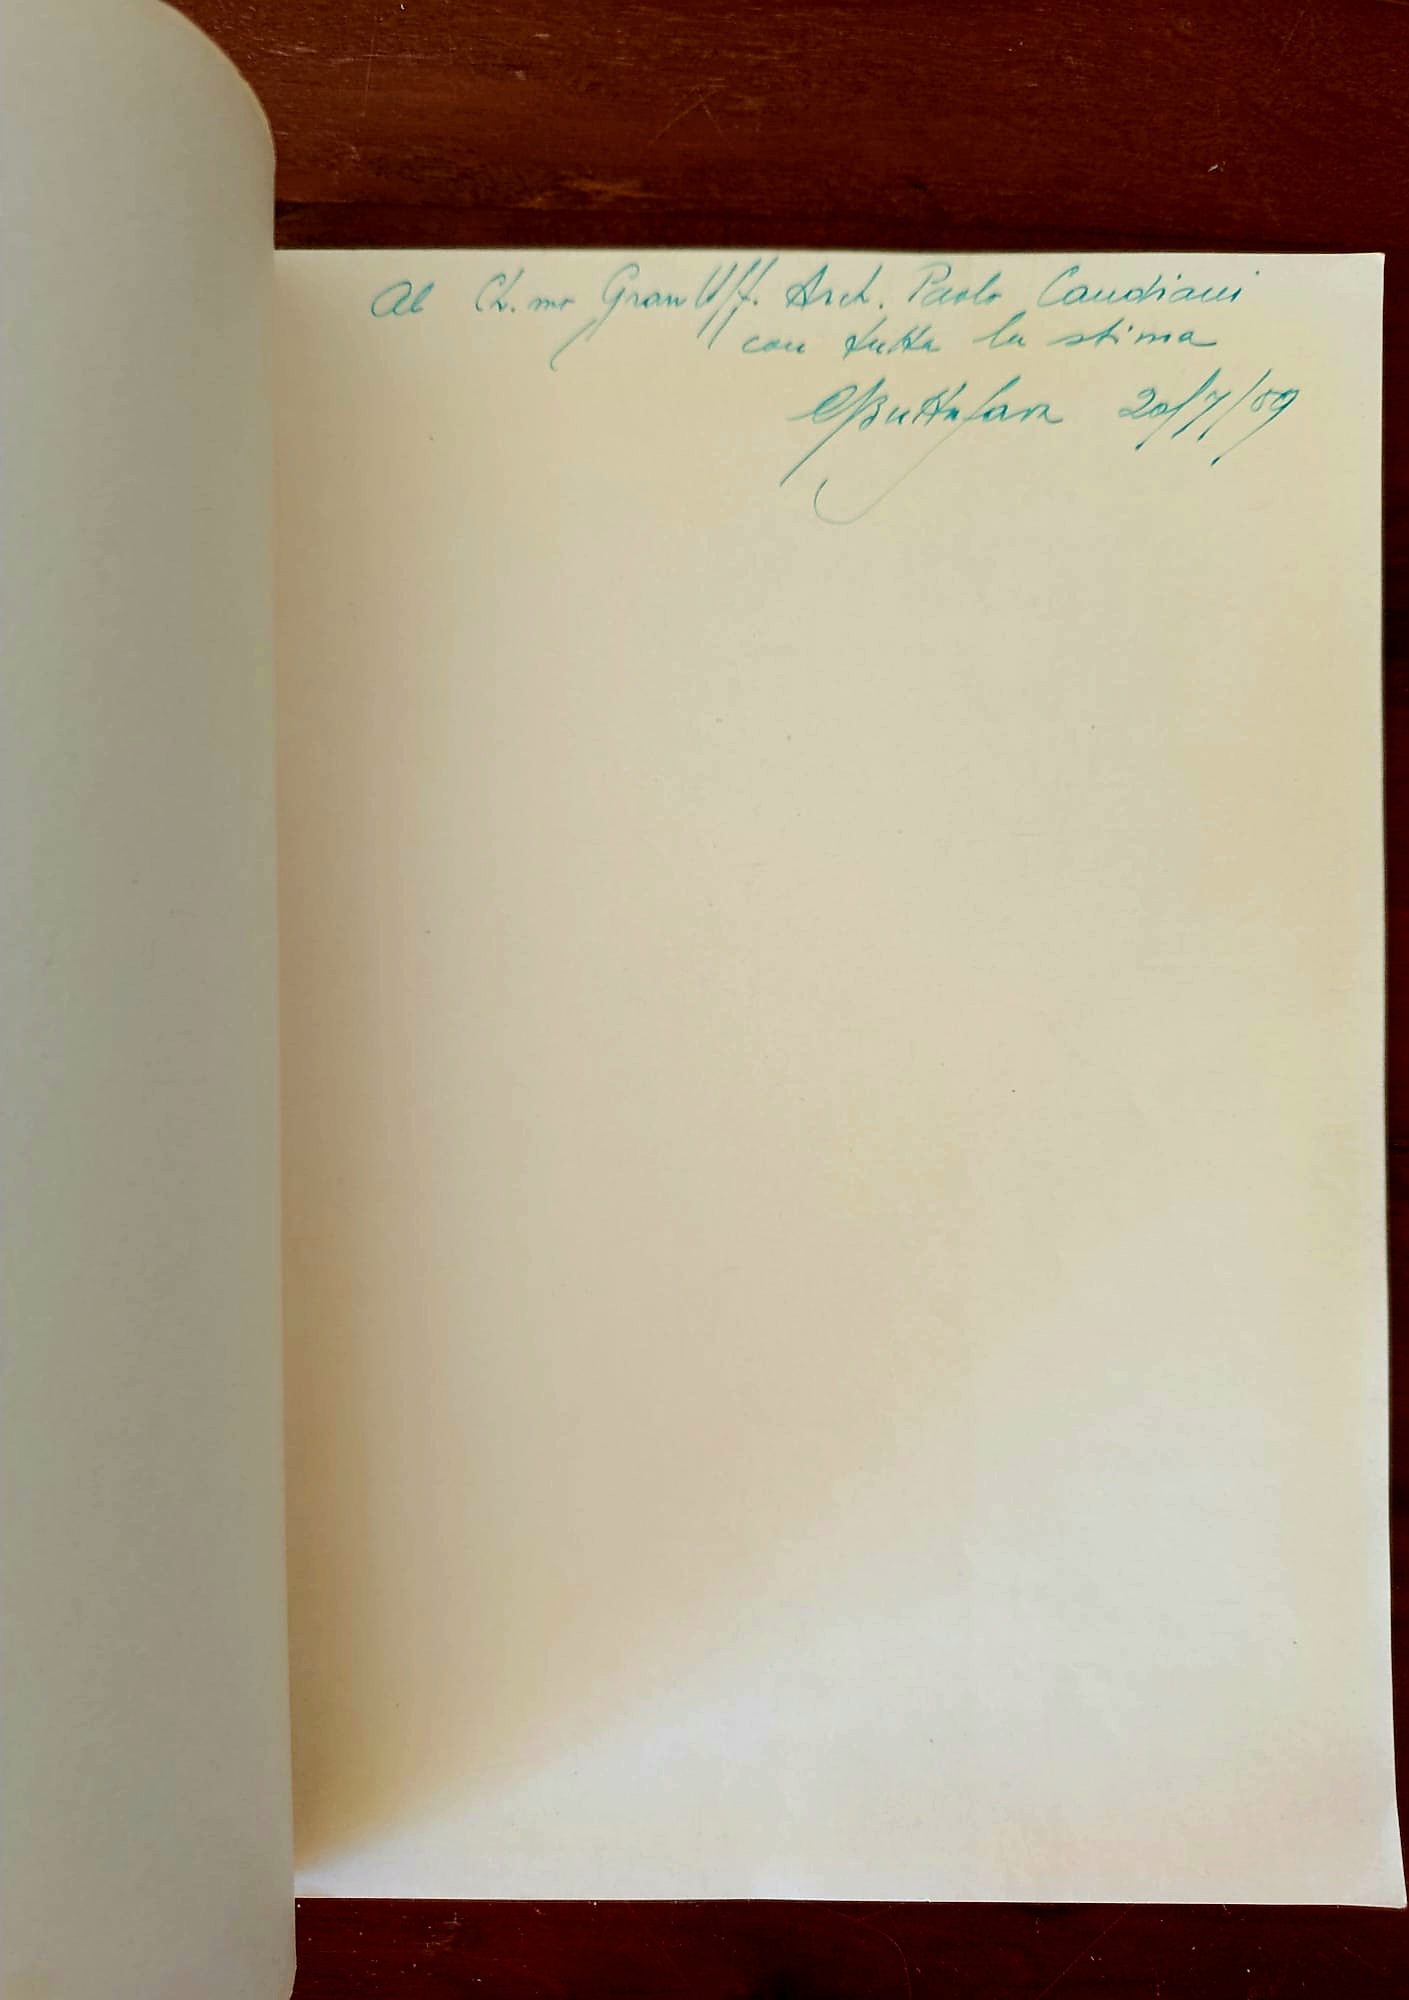 Al Ch.mo Gran Uff. Arch. Paolo Candiani
con tutta la stima
CButtafava 20/7/59